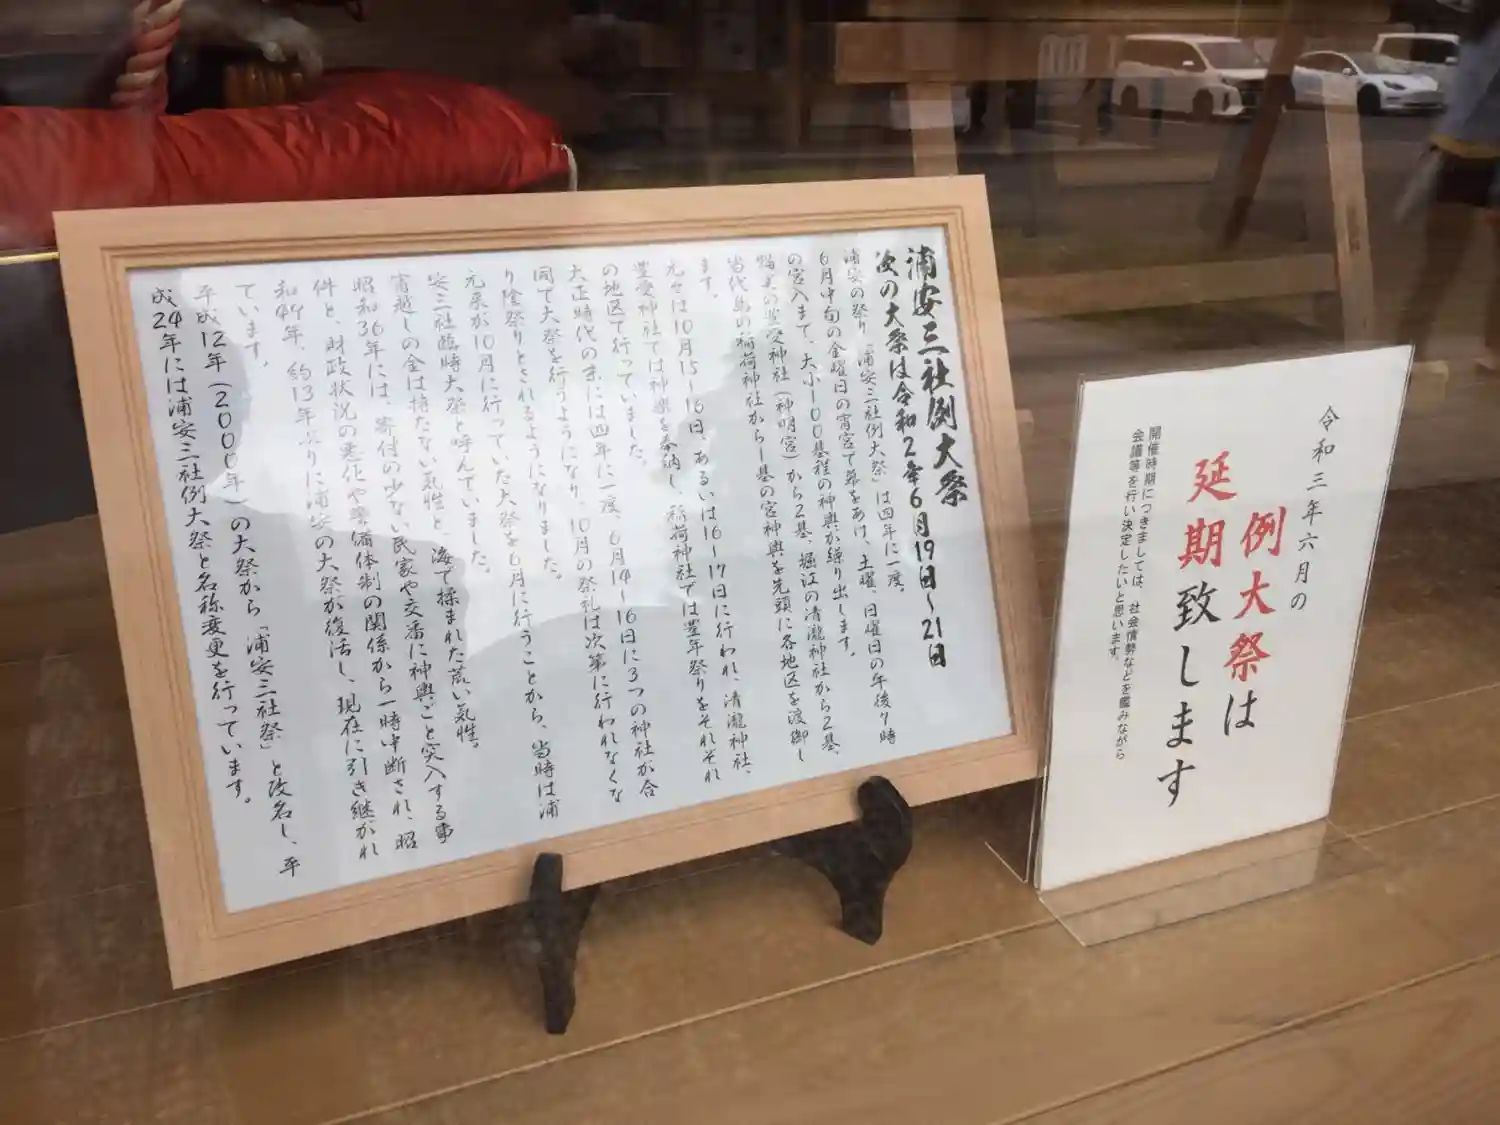 浦安三社例大祭
次の大祭は令和2年6月19日～21日
浦安の祭り「浦安三社例大祭」は四年に一度。
6月中旬の金曜日の宵宮で幕をあけ、土曜、日曜日の午後7時
の宮入まで、大小100基程の神輿が繰り出します。
猫実の豊受神社(神明宮)から2基、堀江の清瀧神社から2基、
当代島の稲荷神社から1基の宮神輿を先頭に各地区を渡御し
ます。
元々は10月15～16日、あるいは16～17日に行われ、清瀧神社、
豊受神社では神楽を奉納し、稲荷神社では豊年祭りをそれぞれ
の地区で行っていました。
大正時代の末には四年に一度、6月14～16日に3つの神社が合
同で大祭を行うようになり、10月の祭礼は次第に行われなくな
り陰祭りとされるようになりました。
元来が10月に行っていた大祭を6月に行うことから、当時は浦
安三社臨時大祭と呼んでいました。
宵越しの金は持たない気性と、海で揉まれた荒い気性。
昭和36年には、寄付の少ない民家や交番に神輿ごと突入する事
件と、財政状況の悪化や警備体制の関係から一時中断され、昭
和49年、約13年ぶりに浦安の大祭が復活し、現在に引き継がれ
ています。
平成12年(2000年)の大祭から「浦安三社祭」と改名し、平
成24年には浦安三社例大祭と名称変更を行っています。
令和三年六月の
例大祭は
延期致します
開催時期につきましては、社会情勢などを鑑みながら
会議等を行い決定したいと思います。